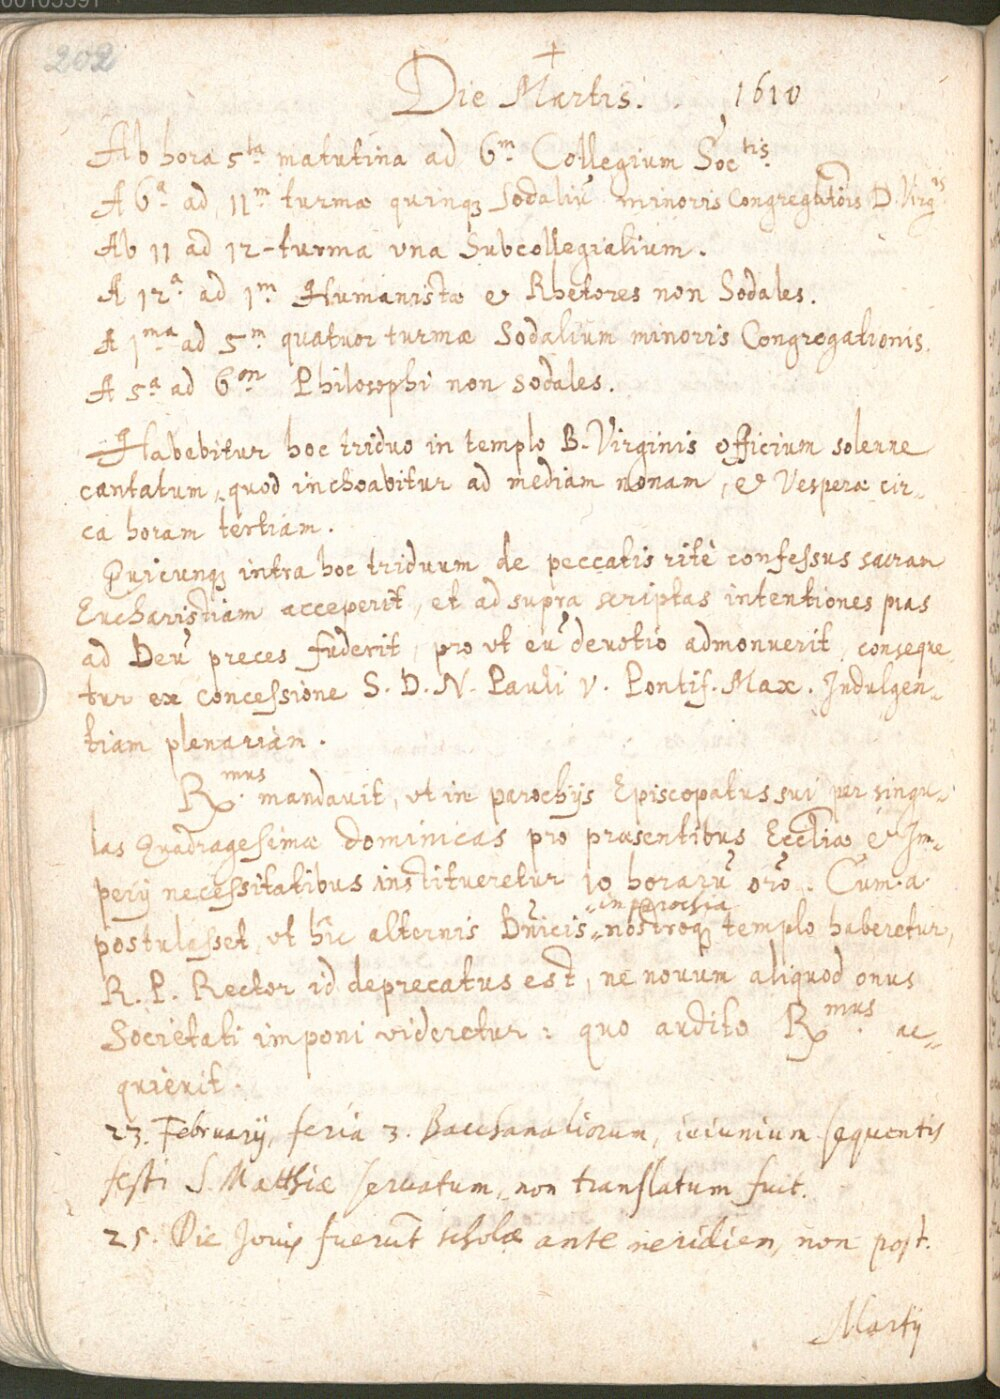 202
Die Martis. 1610
Ab hora 5ta matutina ad 6m Collegium Soctis.
A 6a ad 11m turmæ quinq; Sodaliũ minoris Congregatõis D. Virgis
Ab 11 ad 12 turma vna Subcollegialium.
A 12a ad 1m Humanistæ et Rhetores non Sodales.
A 1ma ad 5m quatuor turmæ Sodalium minoris Congregationis.
A 5a ad 6am Philosophi non Sodales.
Habebitur hoc triduo in templo B. Virginis officium solenne
cantatum, quod inchoabitur ad mediam nonam, et Vesperæ cir-
ca horam tertiam.
Quicunq; intra hoc triduum de peccatis ritè confessus sacram
Eucharistiam acceperit, et ad supra scriptas intentiones pias
ad Deũ preces fuderit, pro vt eũ deuotio admonuerit, conseque-
tur ex concessione S. D. N. Pauli V. Pontif. Max. Indulgen-
tiam plenariam.
Rmus mandauit, vt in parochijs Episcopatus sui per singu-
las Quadragesimæ dominicas pro præsentibus Eccliæ et Im-
perij necessitatibus institueretur 10 horarũ orõ. Cum a
in parochia
postulasset, vt hîc alternis Dnicis nostroq; templo haberetur,
R. P. Rector id deprecatus est, ne nouum aliquod onus
Societati imponi videretur: quo audito Rmus ac-
quieuit.
23. Februarij, feria 3. Bacchanaliorum, ieiunium sequentis
festi S. Matthiæ seruatum, non translatum fuit.
25. Die Jouis fuerũt scholæ ante meridiem, non post.
Martij